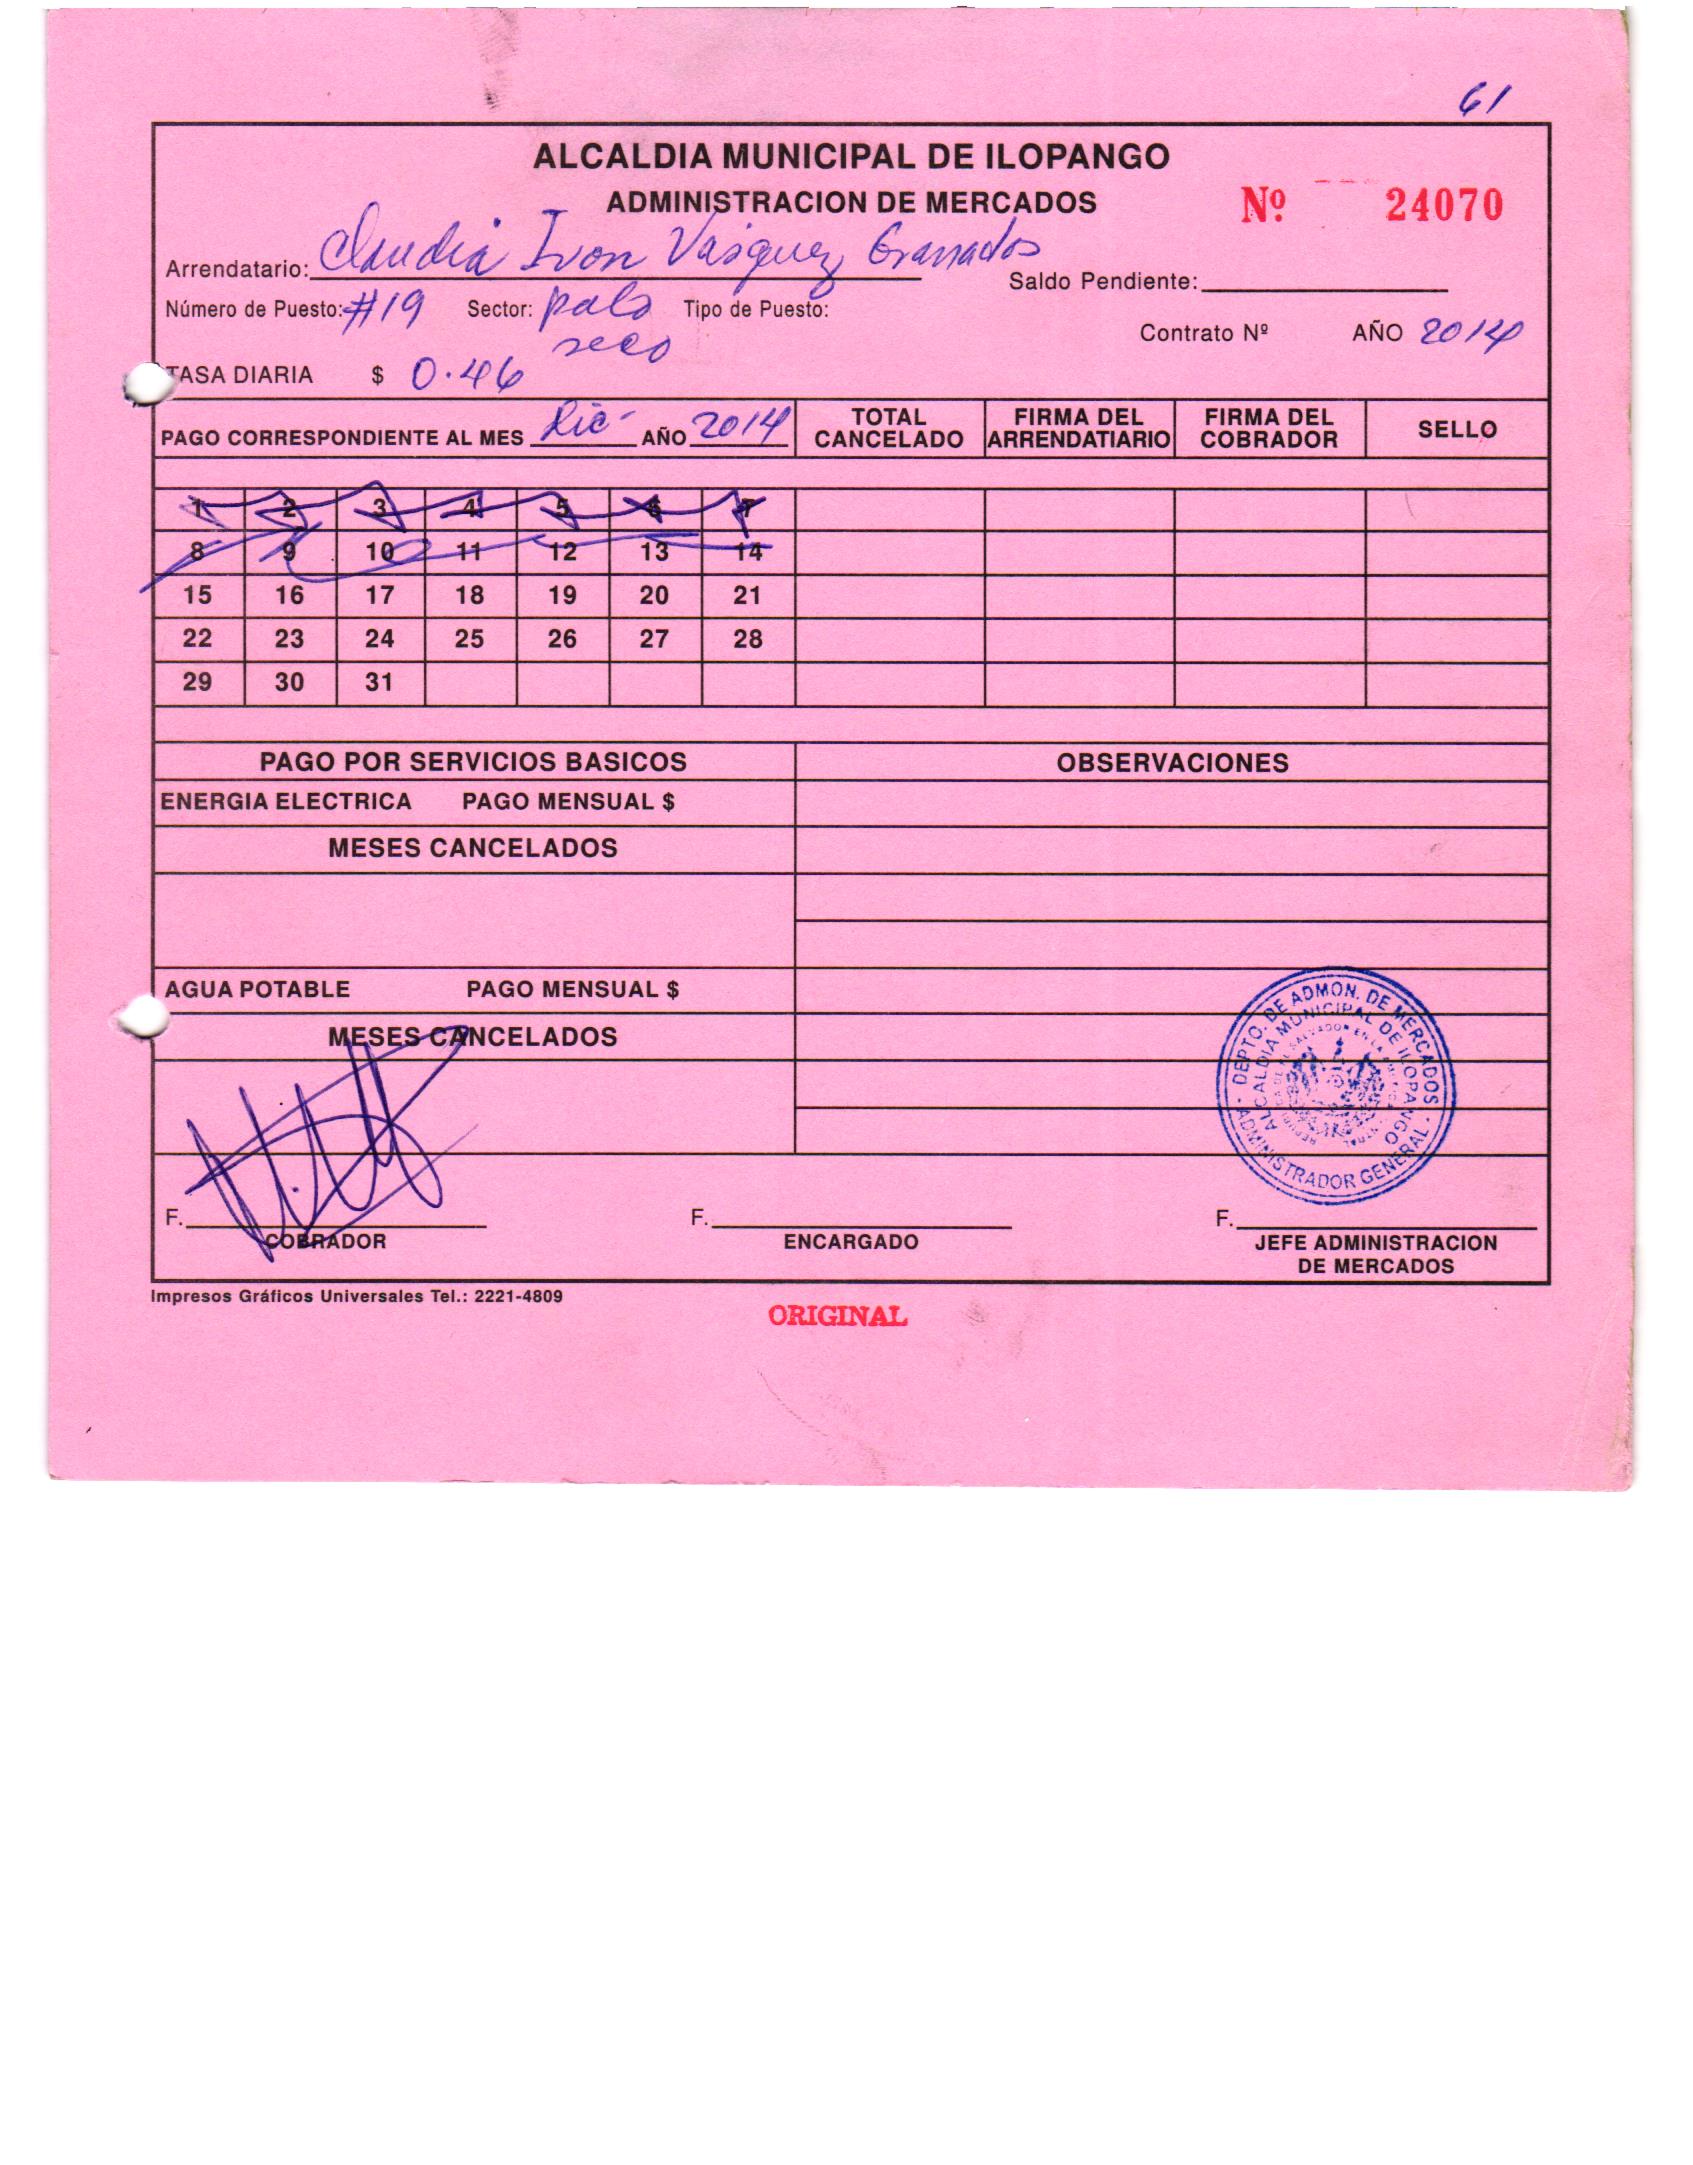 61
ALCALDIA MUNICIPAL DE ILOPANGO
ADMINISTRACION DE MERCADOS
Nº 24070
Arrendatario: Claudia Ivon Vásquez Granados
Saldo Pendiente:
Número de Puesto: #19 Sector: palo seco Tipo de Puesto:
Contrato Nº AÑO 2014
TASA DIARIA $ 0.46
PAGO CORRESPONDIENTE AL MES Dic- AÑO 2014 TOTAL CANCELADO FIRMA DEL ARRENDATIARIO FIRMA DEL COBRADOR SELLO
1 2 3 4 5 6 7
8 9 10 11 12 13 14
15 16 17 18 19 20 21
22 23 24 25 26 27 28
29 30 31
PAGO POR SERVICIOS BASICOS OBSERVACIONES
ENERGIA ELECTRICA PAGO MENSUAL $
MESES CANCELADOS
AGUA POTABLE PAGO MENSUAL $
MESES CANCELADOS
DEPTO. DE ADMON. DE MERCADOS
ALCALDIA MUNICIPAL DE ILOPANGO
ADMINISTRADOR GENERAL
F. F. F.
COBRADOR ENCARGADO JEFE ADMINISTRACION
DE MERCADOS
Impresos Gráficos Universales Tel.: 2221-4809
ORIGINAL